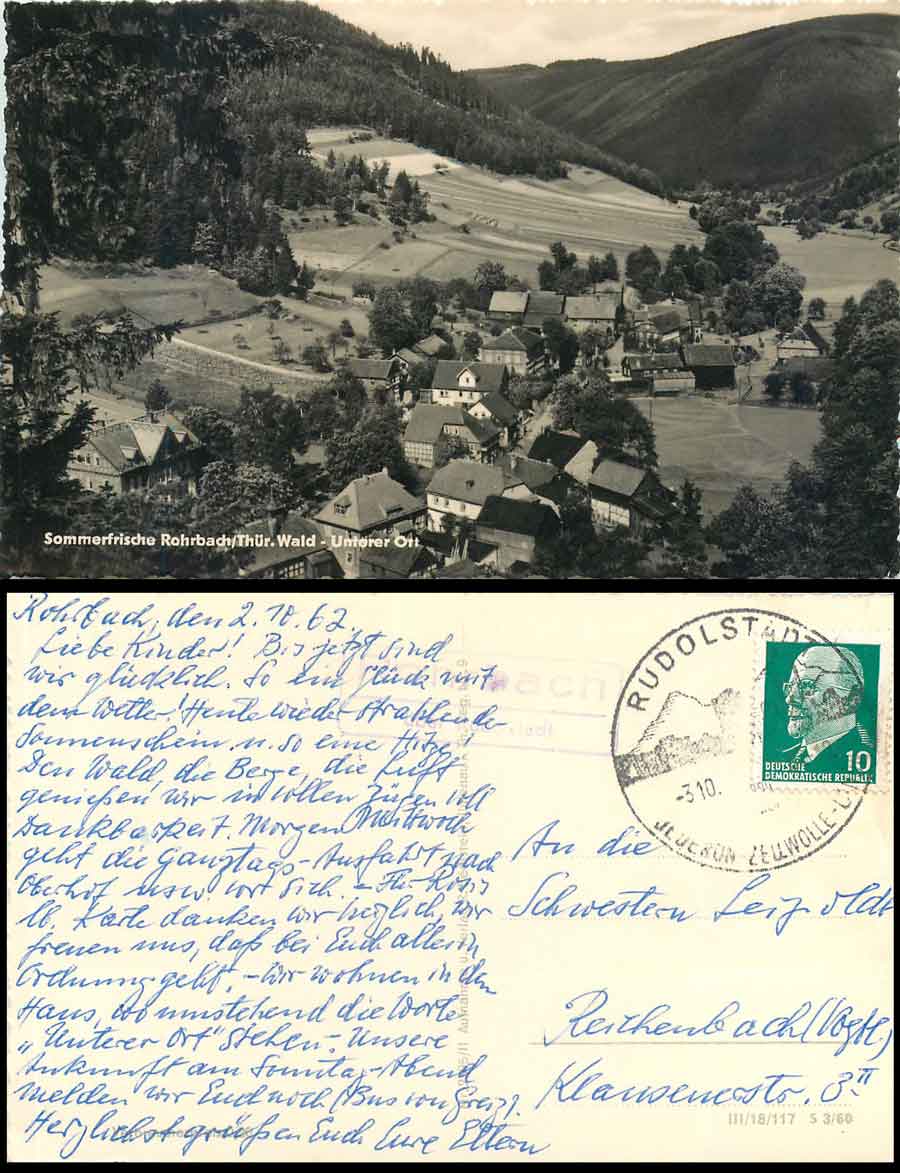 Sommerfrische Rohrbach/Thür. Wald - Unterer Ort
Rohrbach, den 2.10.62.
Liebe Kinder! Bis jetzt sind
wir glücklich. So ein Glück mit
dem Wetter! Heute wieder strahlender
Sonnenschein u. so eine Hitze!
Den Wald, die Berge, die Luft
genießen wir in vollen Zügen voll
Dankbarkeit. Morgen Mittwoch
geht die Ganztags-Ausfahrt nach
Oberhof usw. vor sich. – Für
lb. Karte danken wir herzlich, wir
freuen uns, daß bei Euch alles in
Ordnung geht. – Wir wohnen in dem
Haus, wo umstehend die Worte
„Unterer Ort" stehen. Unsere
Ankunft am Sonntag-Abend
melden wir Euch noch (Bus von Greiz).
Herzlichst grüßen Euch Eure Eltern
RUDOLSTADT
-3.10.
ZELLWOLLE
10
DEUTSCHE
DEMOKRATISCHE REPUBLIK
An die
Schwestern Leipoldt
Reichenbach (Vogtl.)
Klausenerstr. 3 II
III/18/117 S 3/60